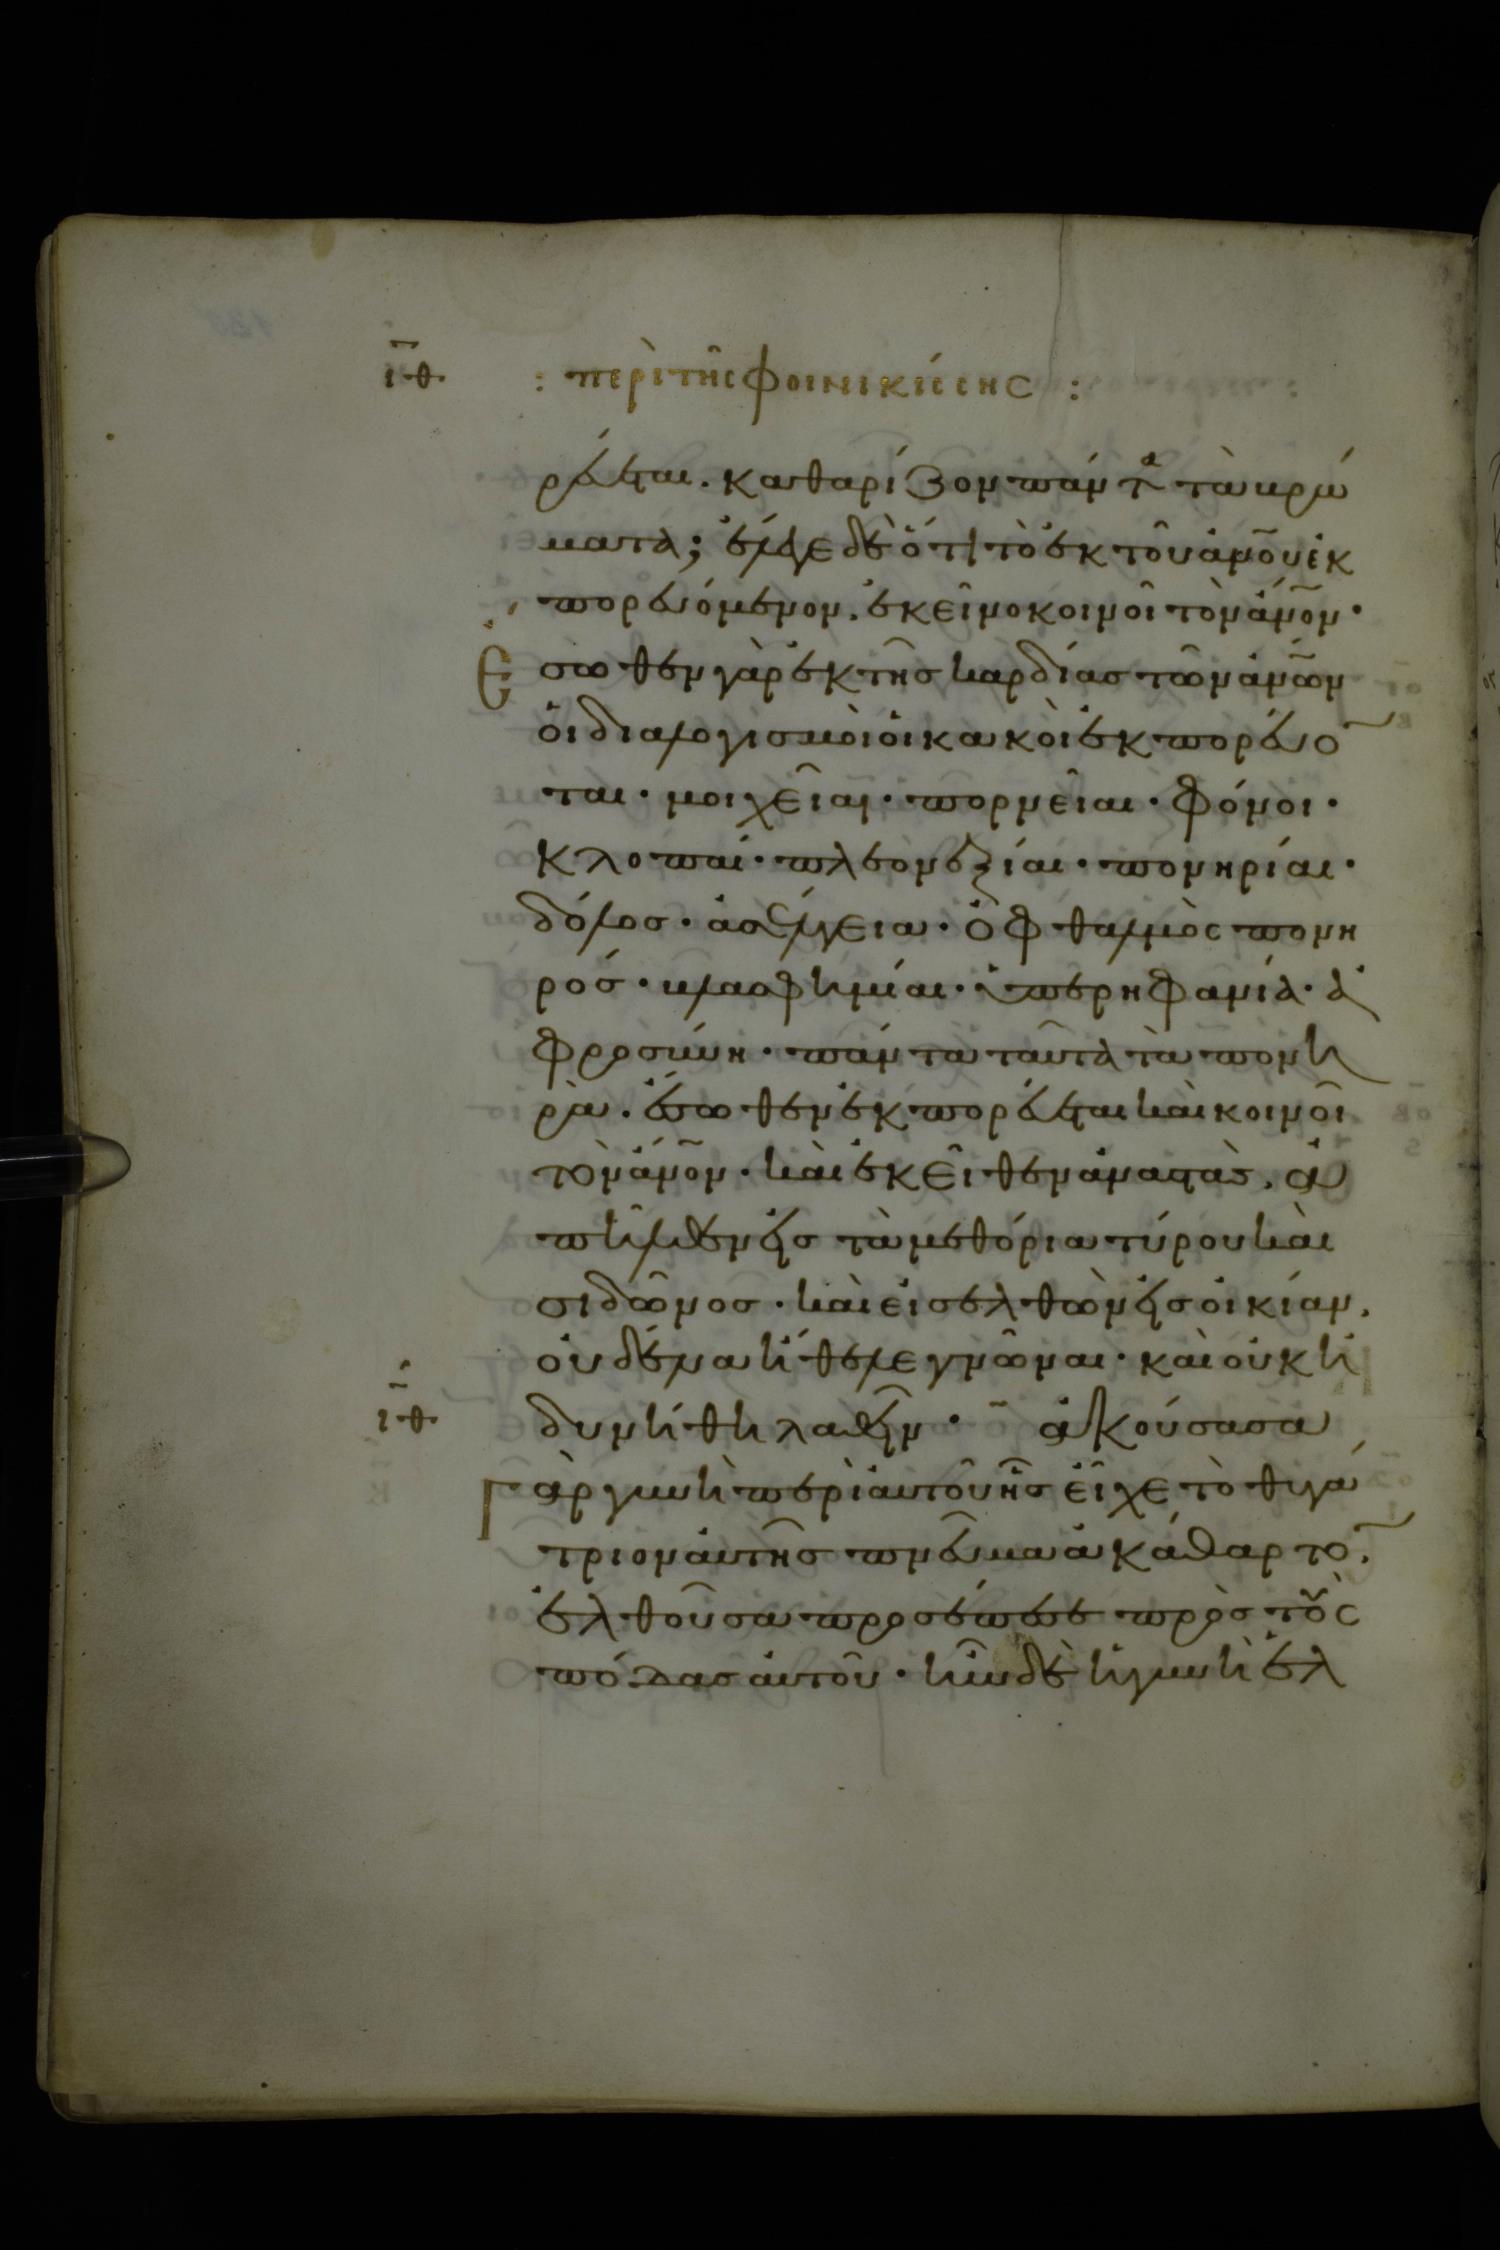 ιθ : περὶ τῆς φοινικίσσης :
ρεύεται. καθαρίζον πάντα τὰ βρώ
ματα; ἔλεγε δὲ ὅτι τὸ ἐκ τοῦ ἀνου ἐκ
πορευόμενον. ἐκεῖνο κοινοῖ τὸν ἄνον·
Ἔσωθεν γὰρ ἐκ τῆς καρδίας τῶν ἀνων
οἱ διαλογισμοὶ οἱ κακοὶ ἐκπορεύο
ται· μοιχεῖαι· πορνεῖαι· φόνοι·
κλοπαί· πλεονεξίαι· πονηρίαι·
δόλος· ἀσέλγεια· ὀφθαλμὸς πονη
ρός· βλασφημίαι· ὑπερηφανία· ἀ
φροσύνη· πάντα ταῦτα τὰ πονη
ρὰ. ἔσωθεν ἐκπορεύεται καὶ κοινοῖ
τὸν ἄνον· καὶ ἐκεῖθεν ἀναστὰς. ἀ
πῆλθεν εἰς τὰ μεθόρια τύρου καὶ
σιδῶνος· καὶ εἰσελθὼν εἰς οἰκίαν.
οὐδένα ἤθελε γνῶναι· καὶ οὐκ ἠ
ιθ δυνήθη λαθεῖν· ἀκούσασα
Γὰρ γυνὴ περὶ αὐτοῦ ἧς εἶχε τὸ θυγά
τριον αὐτῆς πνεῦμα ἀκάθαρτο.
ἐλθοῦσα προσέπεσε πρὸς τοὺς
πόδας αὐτοῦ· ἦν δὲ ἡ γυνὴ ἑλ